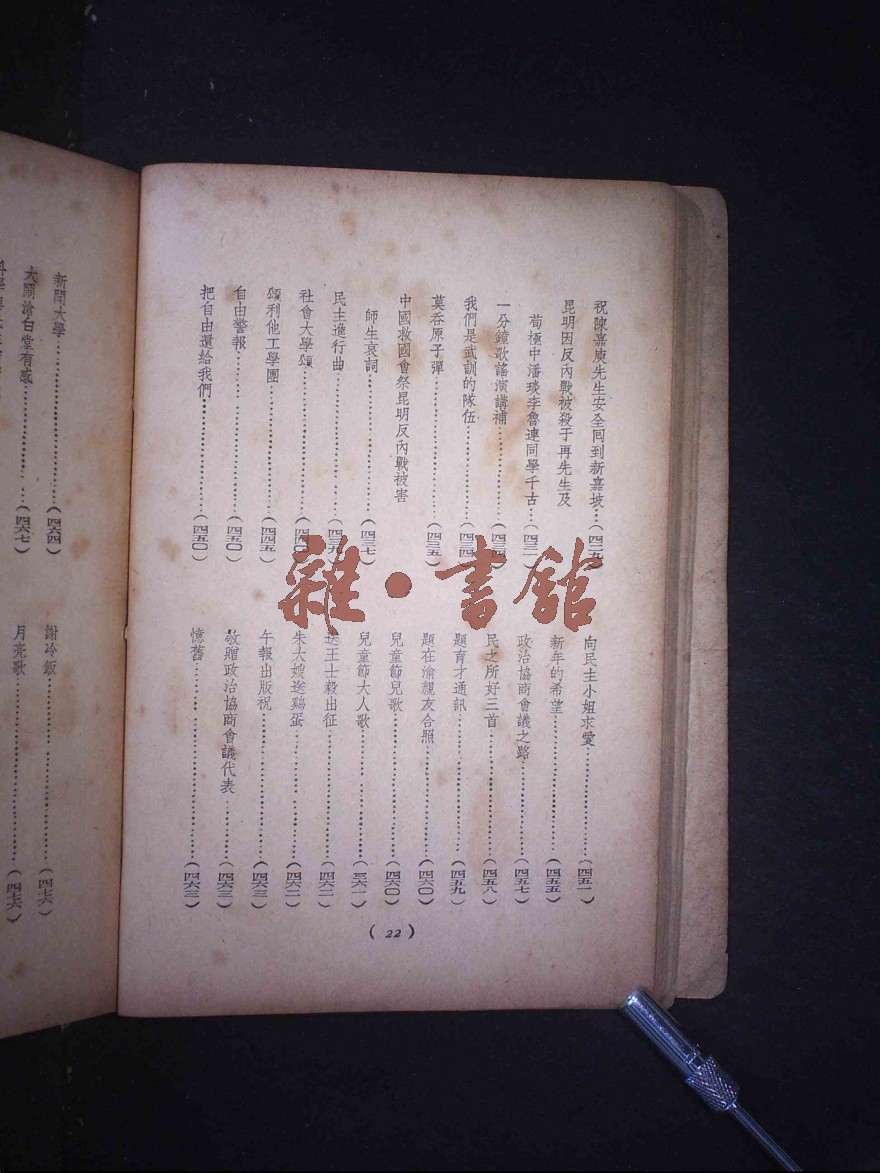 祝陳嘉庚先生安全囘到新嘉坡…(四二九)
昆明因反內戰被殺于再先生及
荀極中潘琰李魯連同學千古…(四三一)
一分鐘歌謠演講補…………(四三四)
我們是武訓的隊伍…………(四三四)
莫吞原子彈…………(四三五)
中國救國會祭昆明反內戰被害
師生哀詞…………(四三七)
民主進行曲…………(四三九)
社會大學頌…………(四四〇)
頌利他工學團…………(四四五)
自由警報…………(四五〇)
把自由還給我們…………(四五〇)
向民主小姐求愛…………(四五一)
新年的希望…………(四五五)
政治協商會議之路…………(四五七)
民之所好三首…………(四五八)
題育才通訊…………(四五九)
題在渝親友合照…………(四六〇)
兒童節兒歌…………(四六〇)
兒童節大人歌…………(四六一)
送王士毅出征…………(四六二)
朱大嫂送鷄蛋…………(四六二)
午報出版祝…………(四六三)
敬贈政治協商會議代表…………(四六三)
憶舊…………(四六三)
(22)
新開大學…………(四六四)
大鬧滄白堂有感…………(四六七)
謝冷飯…………(四七六)
月亮歌…………(四七六)
雜·書館